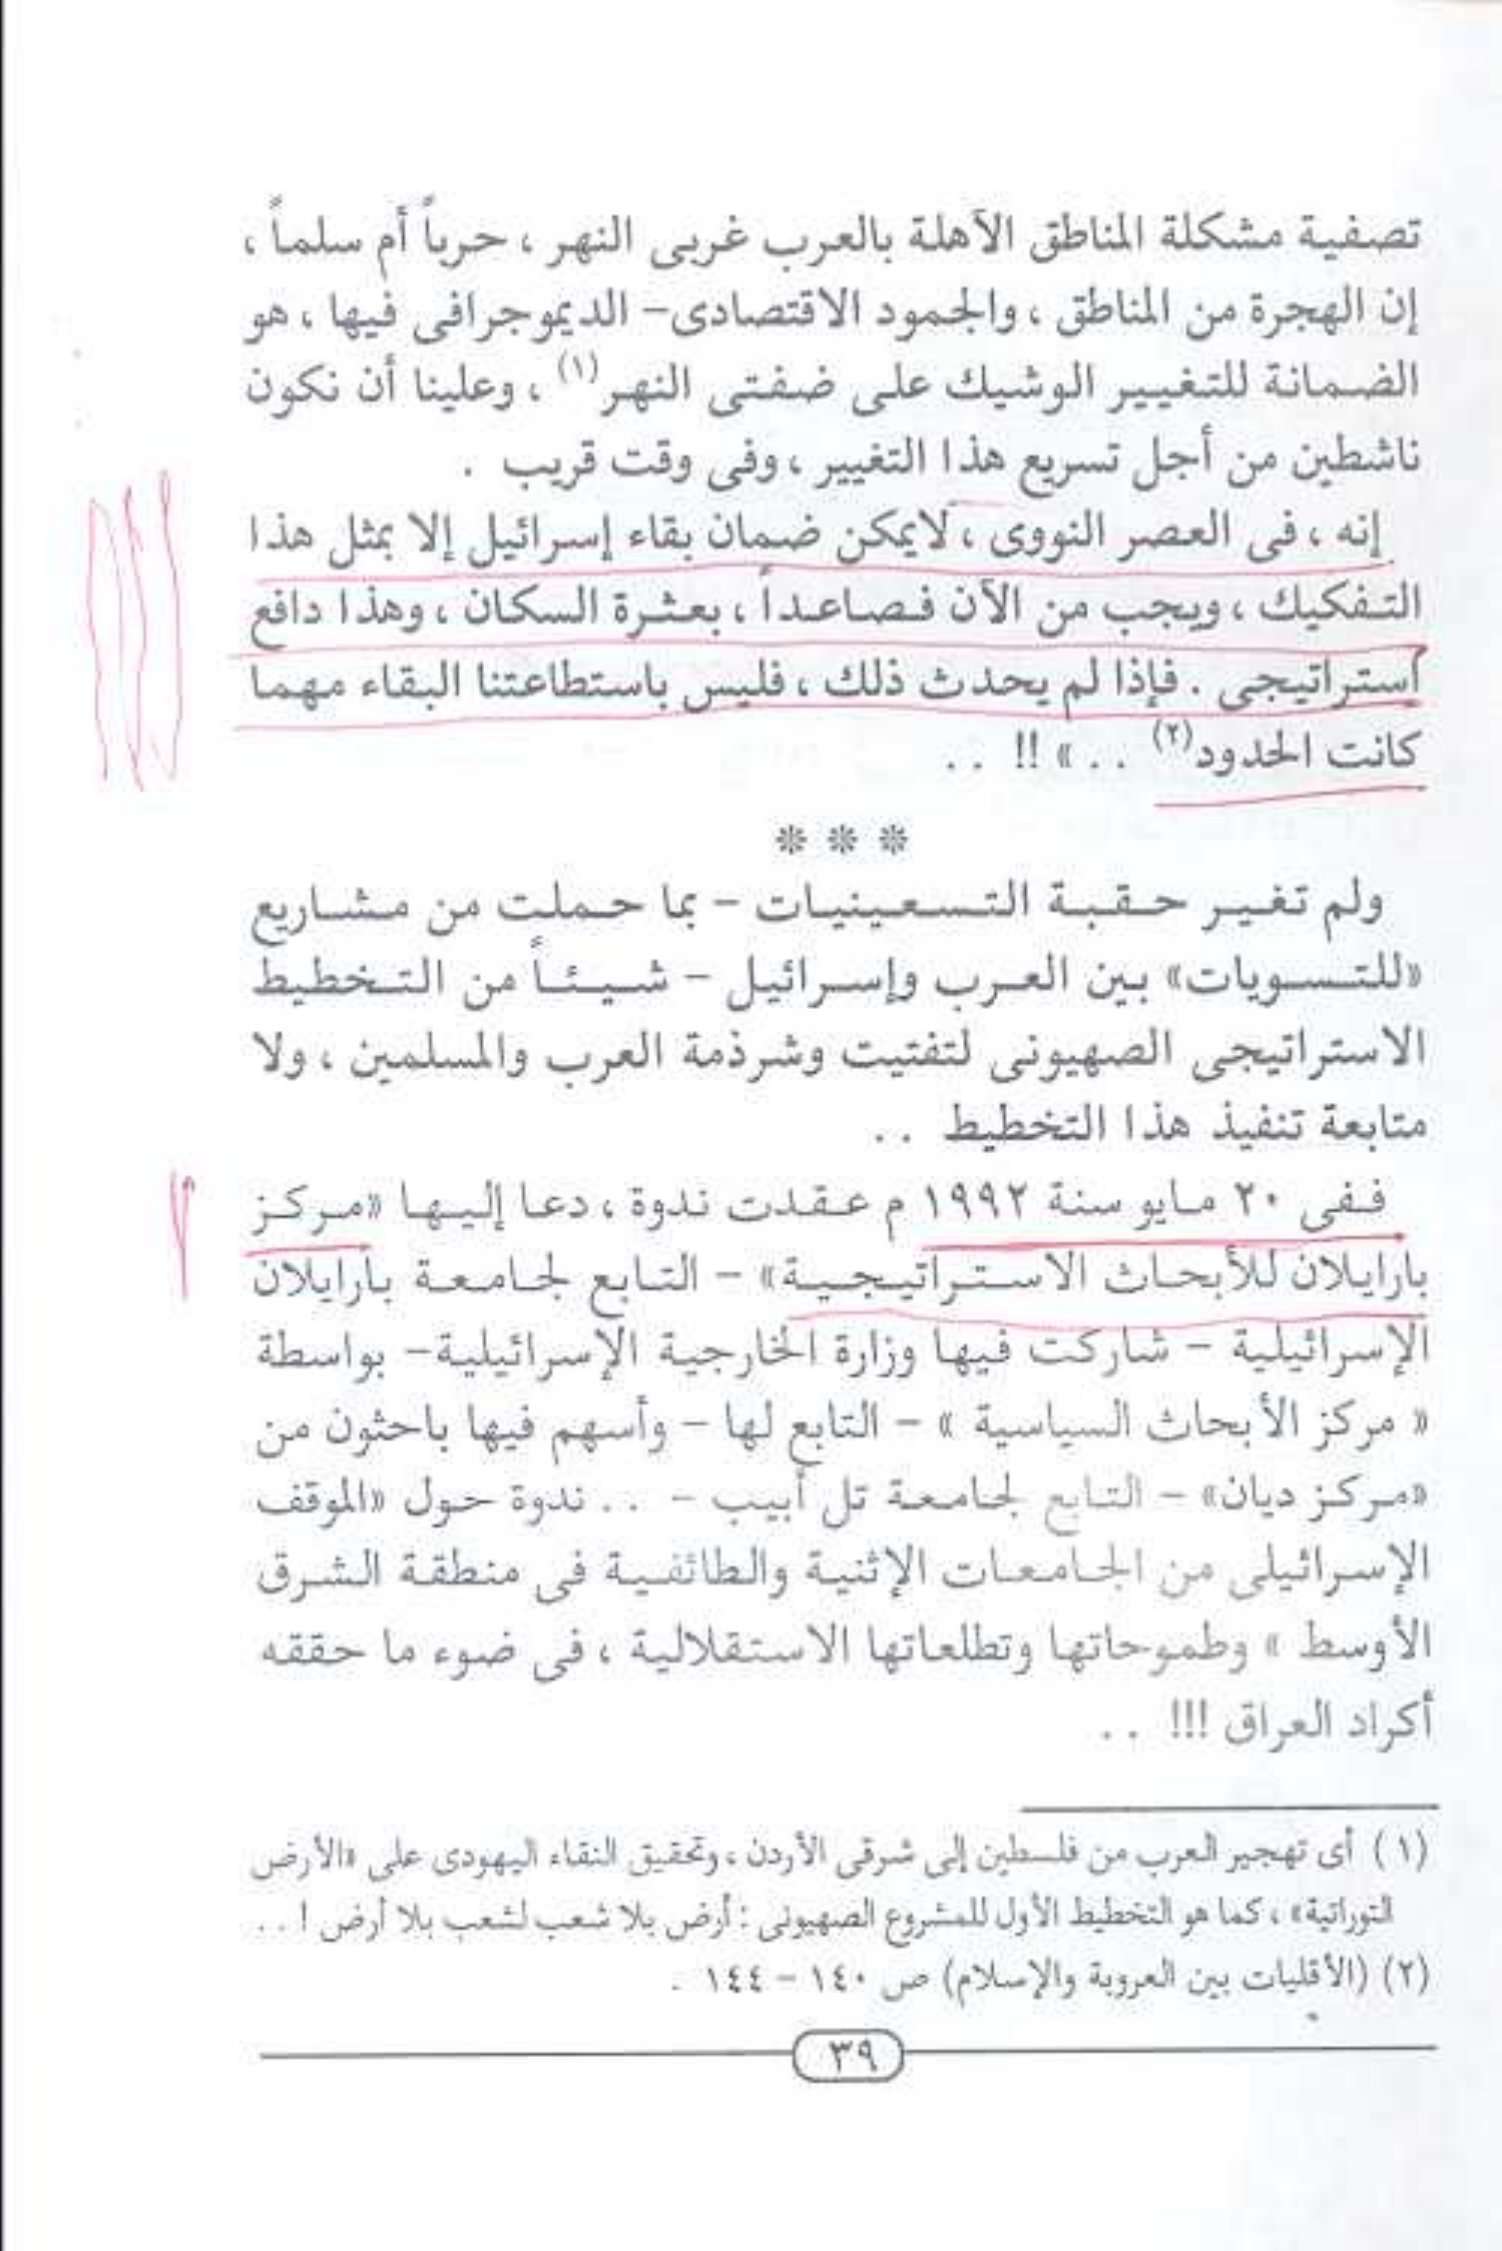 تصفية مشكلة المناطق الآهلة بالعرب غربى النهر ، حرباً أم سلماً ،
إن الهجرة من المناطق ، والجمود الاقتصادى– الديموجرافى فيها ، هو
الضمانة للتغيير الوشيك على ضفتى النهر(١) ، وعلينا أن نكون
ناشطين من أجل تسريع هذا التغيير ، وفى وقت قريب .
إنه ، فى العصر النووى ، لايمكن ضمان بقاء إسرائيل إلا بمثل هذا
التفكيك ، ويجب من الآن فصاعداً ، بعثرة السكان ، وهذا دافع
استراتيجى . فإذا لم يحدث ذلك ، فليس باستطاعتنا البقاء مهما
كانت الحدود(٢) . . » !! . .
* * *
ولم تغير حقبة التسعينيات – بما حملت من مشاريع
«للتسويات» بين العرب وإسرائيل – شيئاً من التخطيط
الاستراتيجى الصهيونى لتفتيت وشرذمة العرب والمسلمين ، ولا
متابعة تنفيذ هذا التخطيط . .
ففى ٢٠ مايو سنة ١٩٩٢ م عقدت ندوة ، دعا إليها «مركز
بارايلان للأبحاث الاستراتيجية» – التابع لجامعة بارايلان
الإسرائيلية – شاركت فيها وزارة الخارجية الإسرائيلية– بواسطة
« مركز الأبحاث السياسية » – التابع لها – وأسهم فيها باحثون من
«مركز ديان» – التابع لجامعة تل أبيب – . . ندوة حول «الموقف
الإسرائيلى من الجامعات الإثنية والطائفية فى منطقة الشرق
الأوسط » وطموحاتها وتطلعاتها الاستقلالية ، فى ضوء ما حققه
أكراد العراق !!! . .
(١) أى تهجير العرب من فلسطين إلى شرقى الأردن ، وتحقيق النقاء اليهودى على «الأرض
التوراتية» ، كما هو التخطيط الأول للمشروع الصهيونى : أرض بلا شعب لشعب بلا أرض ! . .
(٢) (الأقليات بين العروبة والإسلام) ص ١٤٠ – ١٤٤ .
٣٩